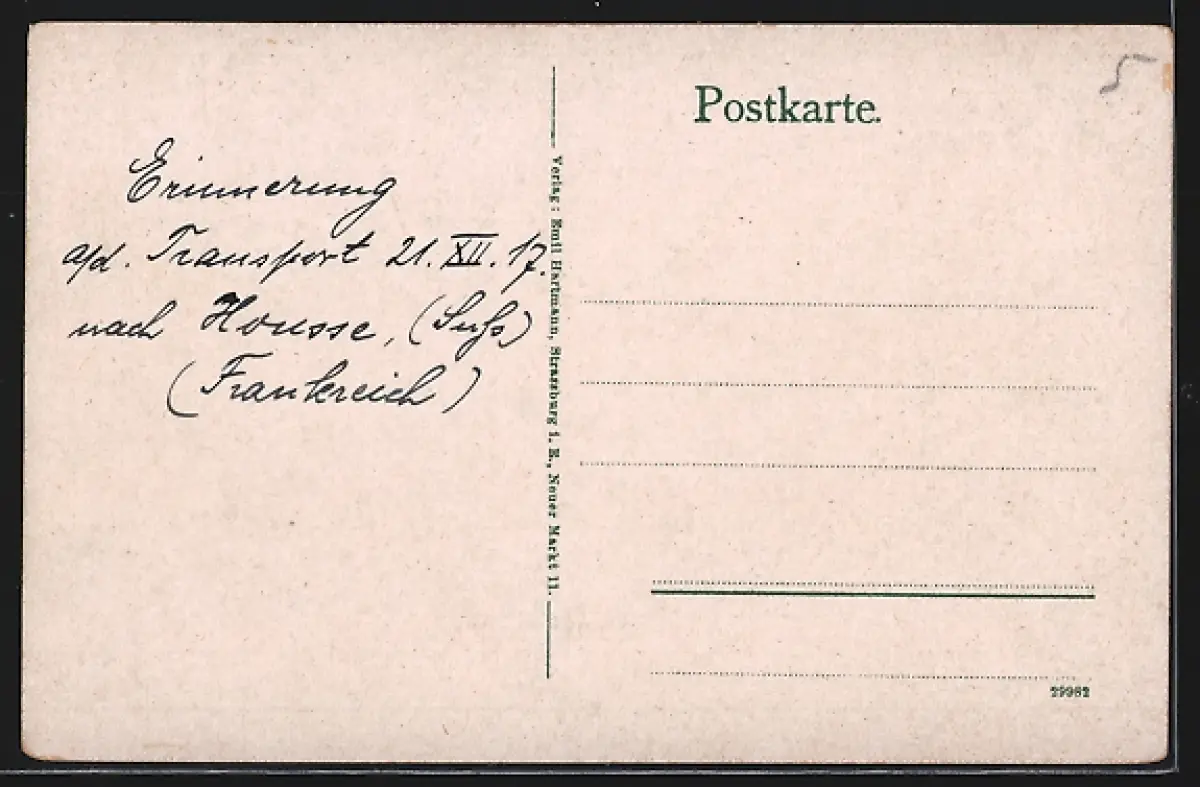 Erinnerung
a/d. Transport 21. XII. 17.
nach Housse,
(Frankreich)
Verlag: Emil Hartmann, Strassburg i. E., Neuer Markt 11.
Postkarte.
5
29982